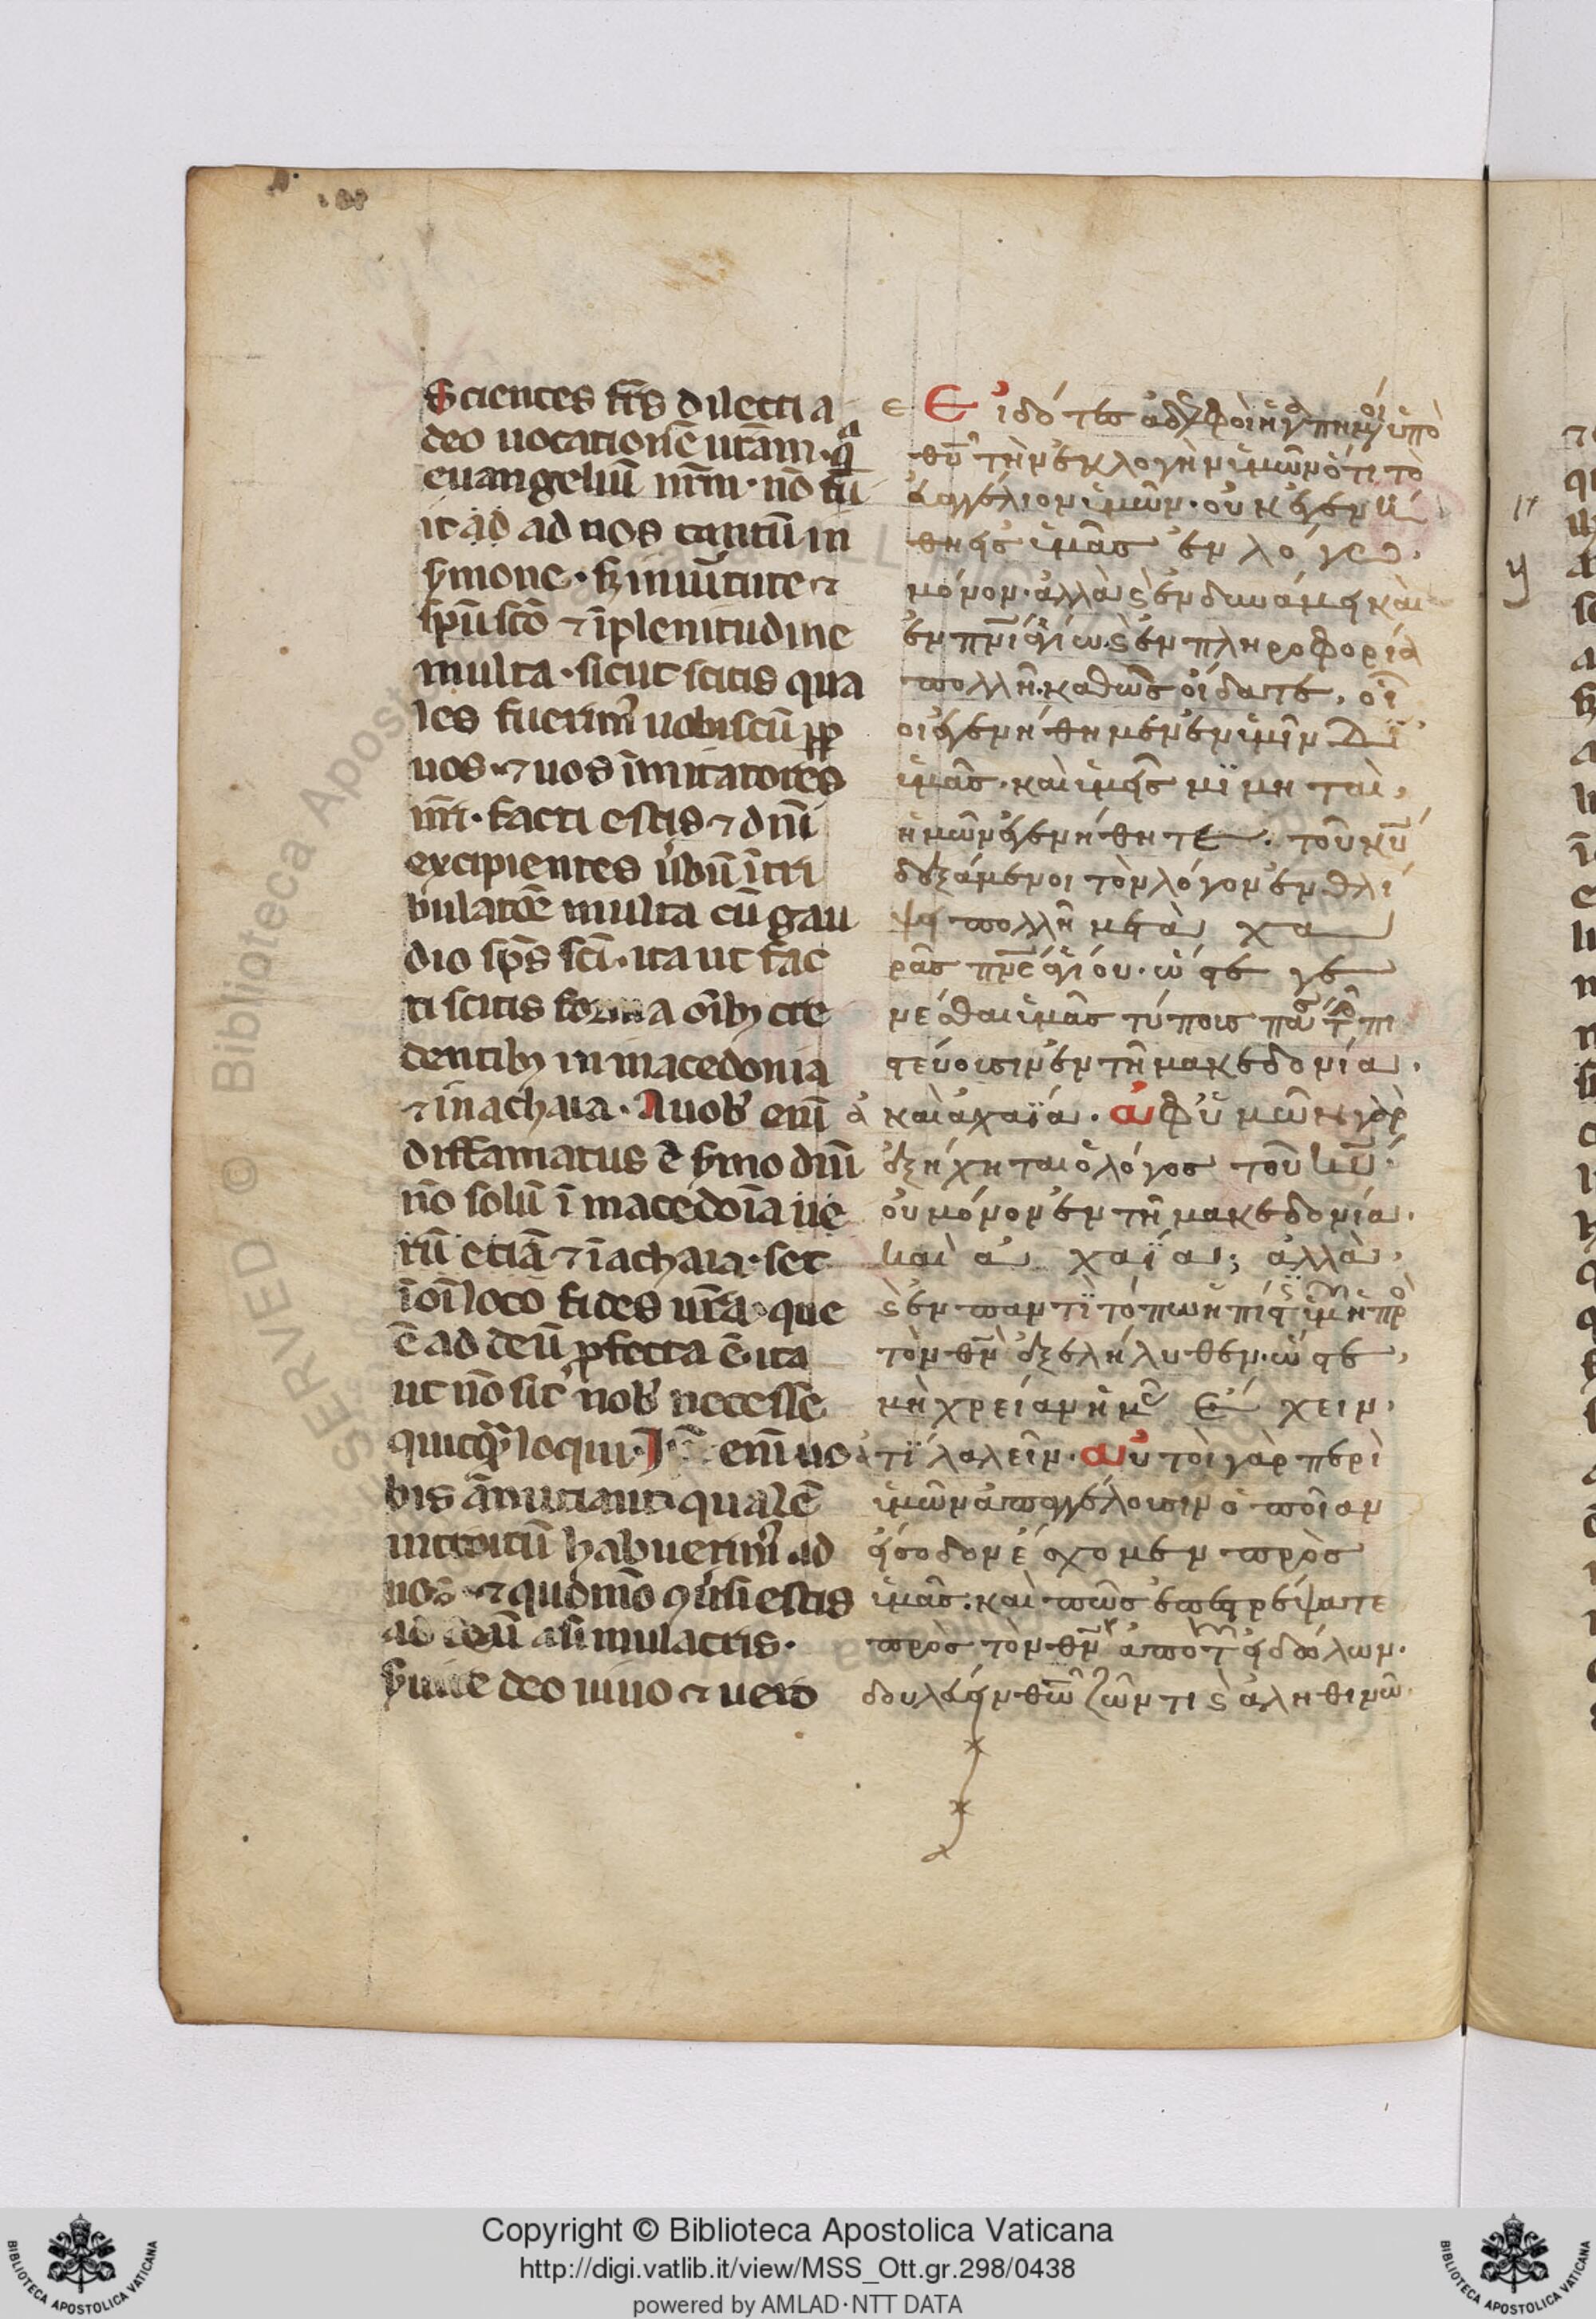 Sciences fr̄s dilecti a
deo uocationē ur̄am. qa
euangeliū nr̄m. nō fu
it ad ad uos tantū in
ẜmone. ẜ in uirtute ⁊
sp̄u sc̄o ⁊ ī plenitudine
multa. sicut scitis qua
les fuerim᾽ uobiscū ꝓpt
uos. ⁊ uos īmitatores
nr̄i. facti estis ⁊ dn̄i
excipientes u᾽bū ī tri
bulatōe multa cū gau
dio sp̄s sc̄i. ita ut fac
ti scitis forma oīb; cre
dentib; in macedonia
⁊ in achaia. A uob᾽ enī
diffamatus ē ẜmo dn̄i
nō solū ī macedoīa ue
rū etiā ⁊ ī achaia. set
ī oī loco fides ur̄a. que
ē ad deū ꝓfecta ē. ita
ut nō sit nob᾽ necesse
quicq̄ loqui. I enī uo
bis ānūtiant qualē
introitū habuerim᾽ ad
uos. ⁊ quōmō ꝯu᾽si estis
ad deū a simulacris.
ẜuire deo uiuo ⁊ uero
ε Εἰδότες ἀδελφοὶ ἠγαπημένοι ὑπὸ
θῦ τὴν ἐκλογὴν ἱμῶν ὅτι τὸ
ἐυαγγέλιον ἱμῶν. οὐκ ἐγενή
θη εἰς ἱμᾶς ἐν λόγω.
μόνον. ἀλλὰ ϗ ἐν δυνάμει καὶ
ἐν πνι ἁγίω. ϗ ἐν πληροφορία
πολλῆ. καθὼς οἴδατε, οἷ
οι ἐγενήθημεν ἐν ἱμῖν δϊ
ἱμᾶς. καὶ ἱμεῖς μϊμηταὶ,
ἡμῶν ἐγενήθητε. τοῦ κῦ
δεξάμενοι τὸν λόγον ἐν θλί
ψει πολλῆ μετὰ χα
ρᾶς πνς ἁγίου. ὥστε γε
νέσθαι ἱμᾶς τύποις πᾶσι τοῖς πι
στεύουσιν ἐν τῆ μακεδονία.
ἀ καὶ ἀχαΐα. ἀφ ὑμῶν γὰρ
ἐξήχηται ὁ λόγος τοῦ κῦ.
οὐ μόνον ἐν τῆ μακεδονία.
καὶ ἀχαΐα; ἀλλὰ,
ϗ ἐν παντϊ τόπω ἡ πίστις ἱμῶν ἡ πρὸ
τὸν θν ἐξελήλυθεν. ὥστε,
μὴ χρείαν ἡμᾶς ἔχειν.
τϊ λαλεῖν. αὐτοὶ γὰρ περὶ
ἱμῶν ἀπαγγέλουσιν ὁποῖαν
εἴσοδον ἔσχομεν πρὸς
ἱμᾶς. καὶ πῶς ἐπεστρέψατε
πρὸς τὸν θν ἀπὸ τῶν εἰδώλων.
δουλέυειν θω ζῶντι ϗ ἀληθινῶ.
Copyright © Biblioteca Apostolica Vaticana
http://digi.vatlib.it/view/MSS_Ott.gr.298/0438
powered by AMLAD·NTT DATA